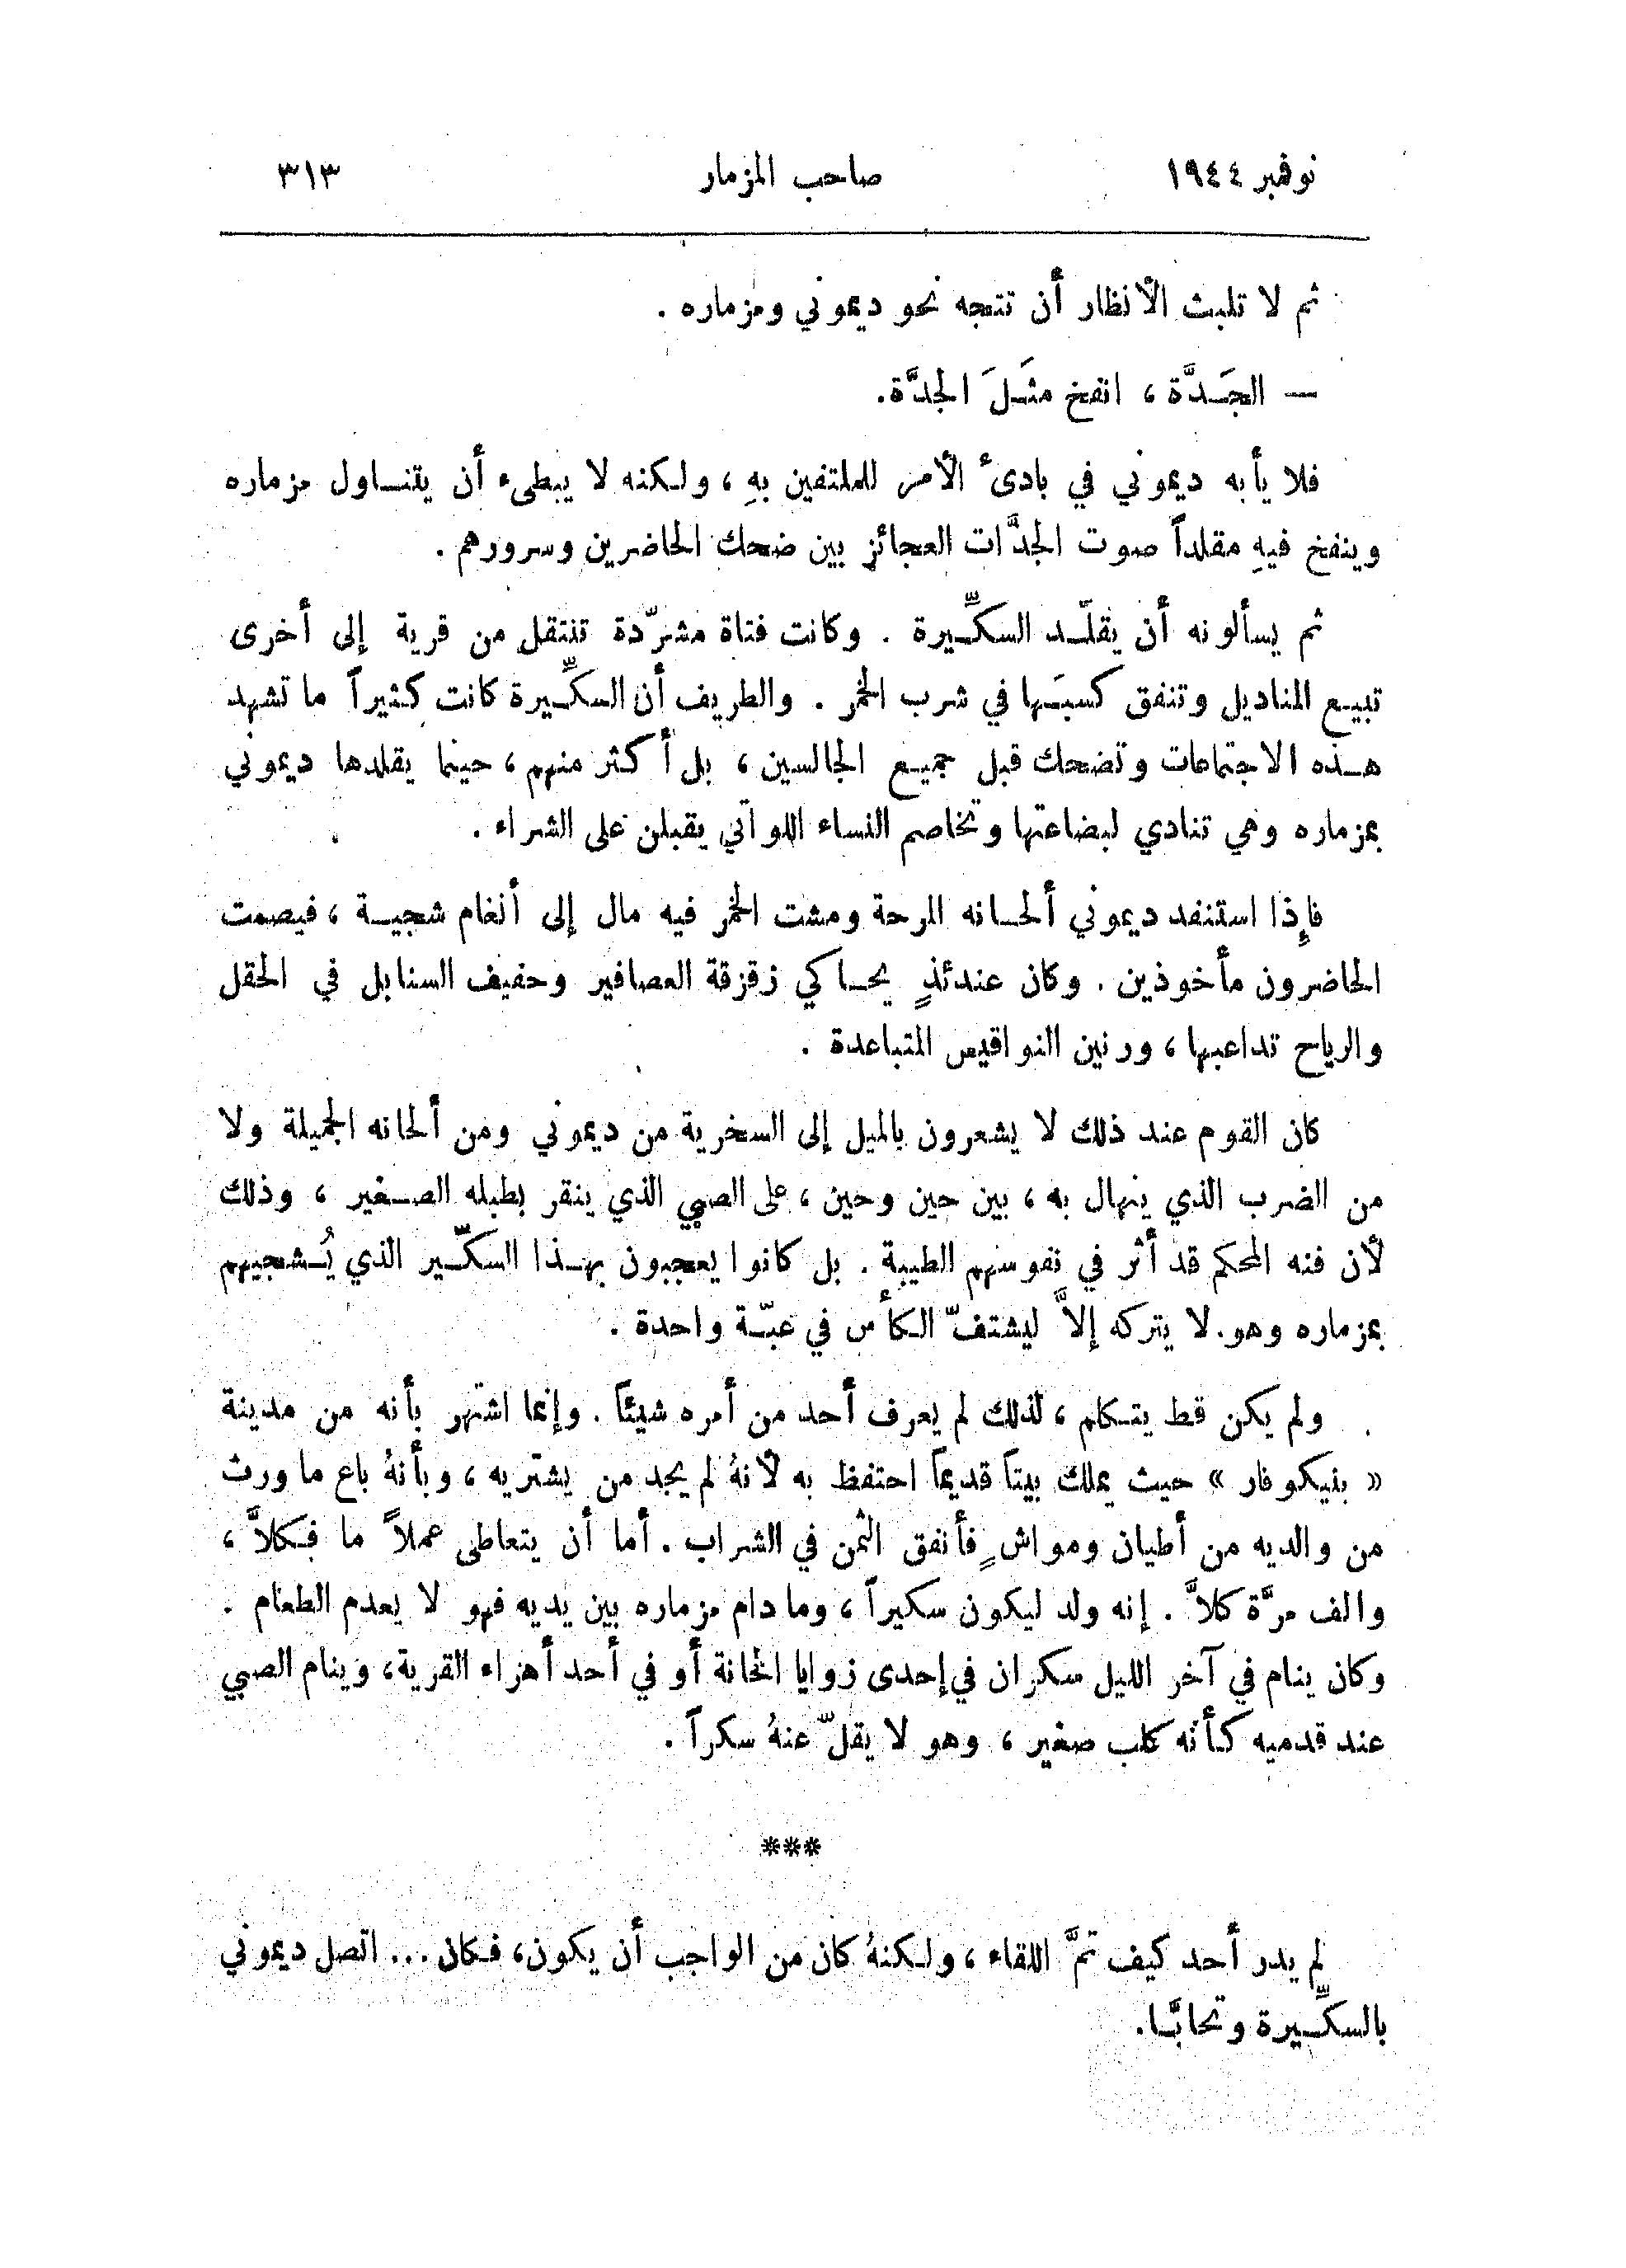 نوفمبر ١٩٤٤ صاحب المزمار ٣١٣
ثم لا تلبث الأنظار أن تتجه نحو ديموني ومزماره .
— الجَـدَّة ، انفخ مثـَلَ الجدَّة.
فلا يأبه ديموني في بادئ الأمر للملتفين بهِ ، ولكنه لا يبطىء أن يتنـاول مزماره
وينفخ فيهِ مقلداً صوت الجدَّات العجائز بين ضحك الحاضرين وسرورهم .
ثم يسألونه أن يقلّـد السكِّـيرة . وكانت فتاة مشرّدة تنتقل من قرية إلى أخرى
تبيـع المناديل وتنفق كسبَـها في شرب الخمر . والطريف أن السكِّـيرة كانت كثيراً ما تشهد
هـذه الاجتماعات وتضحك قبل جميـع الجالسين ، بل أكثر منهم ، حينما يقلدها ديموني
بمزماره وهي تنادي لبضاعتها وتخاصم النساء اللواتي يقبلن على الشراء .
فإِذا استنفد ديموني ألحـانه المرحة ومشت الخمر فيه مال إلى أنغام شجيـة ، فيصمت
الحاضرون مأخوذين . وكان عندئذٍ يحـاكي زقزقة العصافير وحفيف السنابل في الحقل
والرياح تداعبها ، ورنين النواقيس المتباعدة .
كان القوم عند ذلك لا يشعرون بالميل إلى السخرية من ديموني ومن ألحانه الجميلة ولا
من الضرب الذي ينهال به ، بين حين وحين ، على الصبي الذي ينقر بطبله الصـغير ، وذلك
لأن فنه المحكم قد أثر في نفوسهم الطيبة . بل كانوا يعجبون بهـذا السكّـير الذي يُـشجيهم
بمزماره وهو لا يتركه إلاَّ ليشتفّ الكأس في عبّـة واحدة .
ولم يكن قط يتـكلم ، لذلك لم يعرف أحد من أمره شيئاً . وإنما اشتهر بأنه من مدينة
« بنيكوفار » حيث يملك بيتاً قديماً احتفظ به لأنهُ لم يجد من يشتريه ، وبأنهُ باع ما ورث
من والديه من أطيان ومواشٍ فأنفق الثمن في الشراب . أما أن يتعاطى عملاً ما فـكلاَّ ،
والف مرَّة كلاَّ . إنه ولد ليكون سكيراً ، وما دام مزماره بين يديه فهو لا يعدم الطعام .
وكان ينام في آخر الليل سكران في إحدى زوايا الخانة أو في أحد أهراء القرية، وينام الصبي
عند قدميه كأنه كلب صغير ، وهو لا يقلّ عنهُ سكراً .
***
لم يدر أحد كيف تمَّ اللقاء ، ولكنهُ كان من الواجب أن يكون، فـكان ... اتصل ديموني
بالسكِّـيرة وتحابَّـا.